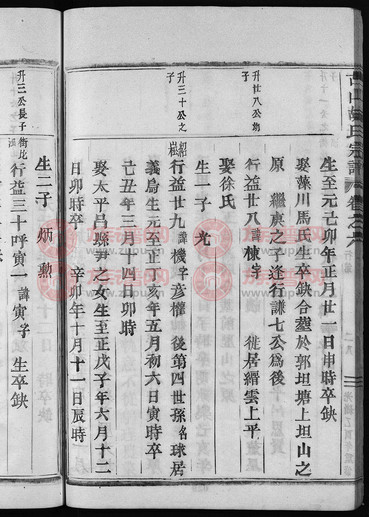 古山胡氏宗譜
卷之
生至元己卯年正月廿一日申時卒缺
娶藻川馬氏生卒缺合𦵏於郭坦塘上坦山之
原 繼東之子逢行謙七公為後
升廿八公幼子
行益廿八諱棟字 徙居縉雲上平
娶徐氏
生一子 光
升三十公之子
行益廿九諱機字彥權 後第四世孫名球居
義烏生元至正丁亥年五月初六日寅時卒
己丑年三月十四日卯時
娶太平呂縣尹之女生至正戊子年六月十二
日卯時卒 辛卯年十月十一日辰時
生二子 炳 勳
升三公長子
行益三十呼寅一諱寅字 生卒缺